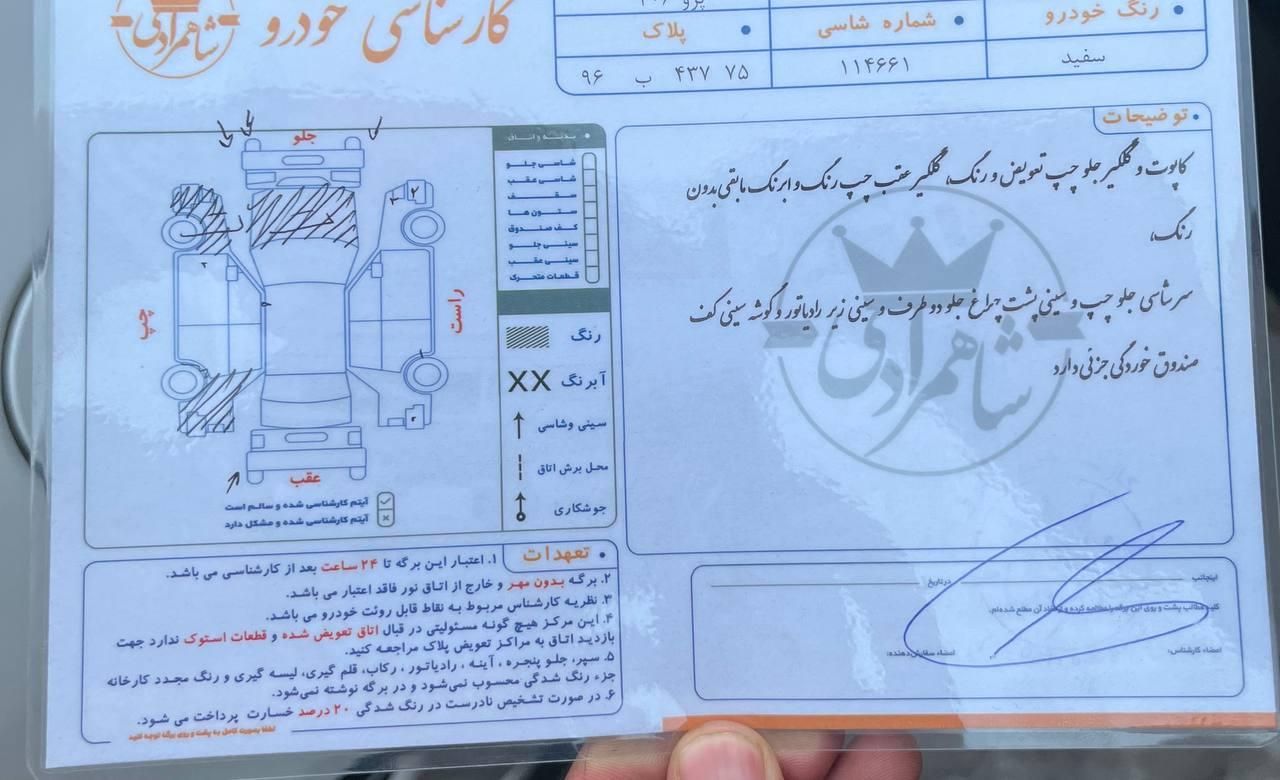 شاهمرادی
کارشناسی خودرو
پژو ۲۰۶
رنگ خودرو
شماره شاسی
پلاک
سفید
۱۱۴۶۶۱
۹۶ ب ۴۳۷ ۷۵
توضیحات
کاپوت و گلگیر جلو چپ تعویض و رنگ، گلگیر عقب چپ رنگ و ابرنگ مابقی بدون
رنگ،
سرشاسی جلو چپ و سینی پشت چراغ جلو دو طرف و سینی زیر رادیاتور و گوشه سینی کف
صندوق خوردگی جزئی دارد
شاهمرادی
بدنه و اتاق
شاسی جلو
شاسی عقب
سقف
ستون ها
کف صندوق
سینی جلو
سینی عقب
قطعات متحرک
رنگ
آبرنگ
XX
سینی و شاسی
محل برش اتاق
جوشکاری
جلو
چپ
راست
عقب
آیتم کارشناسی شده و سالم است
آیتم کارشناسی شده و مشکل دارد
تعهدات
۱. اعتبار این برگه تا ۲۴ ساعت بعد از کارشناسی می باشد.
۲. برگه بدون مهر و خارج از اتاق نور فاقد اعتبار می باشد.
۳. نظریه کارشناس مربوط به نقاط قابل روئت خودرو می باشد.
۴. این مرکز هیچ گونه مسئولیتی در قبال اتاق تعویض شده و قطعات استوک ندارد جهت
بازدید اتاق به مراکز تعویض پلاک مراجعه کنید.
۵. سپر، جلو پنجره، آینه، رادیاتور، رکاب، قلم گیری، لیسه گیری و رنگ مجدد کارخانه
جزء رنگ شدگی محسوب نمی‌شود و در برگه نوشته نمی‌شود.
۶. در صورت تشخیص نادرست در رنگ شدگی ۲۰ درصد خسارت پرداخت می شود.
لطفا بصورت کامل به پشت و روی برگه توجه کنید
اینجانب
در تاریخ
کلیه مطالب پشت و روی این برگه را مطالعه کرده و از مفاد آن مطلع شده‌ام.
امضاء کارشناس:
امضاء سفارش‌دهنده: